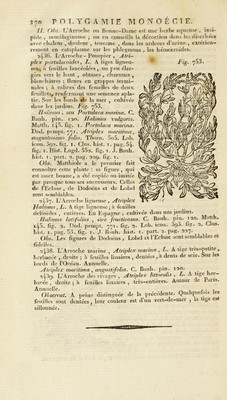 270 POLYGAMIE MONOÉCIE.
II. Obs. L'Arroche ou Bonne-Dame est une herbe aqueuse, insi-
pide, mucilagineuse ; on en conseille la décoction dans les diarrhées
avec chaleur, douleur, tenesme, dans les ardeurs d'urine, extérieu-
rement en cataplasme sur les phlegmons, les hémorroïdes.
2436. L'Arroche - Pourpier, Atri-
plex portulacoides, L. A tiges ligneu-
ses, à feuilles lancéolées, un peu élar-
gies vers le haut, obtuses, charnues,
blanchâtres ; fleurs en grappes termi-
nales ; à calices des femelles de deux
feuillets, renfermant une semence apla-
tie. Sur les bords de la mer, cultivée
dans les jardins. Fig. 753.
Fig. 753.
Halimus, seu Portulaca marina. C.
Bauh. pin. 120. Halimus vulgaris.
Matth. 145, fig. 1. Portulaca marina.
Dod. pempt. 771. Atriplex maritima,
angustissimo folio. Thora. 305. Lob.
icon. 392, fig. 1. Clus. hist. 1. pag. 54.
fig. 1. Hist. Lugd. 552, fig. 1. J. Bauh.
hist. 1. part. 2. pag. 209. fig. 1.
Obs. Matthiole a le premier fait
connoître cette plante : sa figure, qui
est assez bonne, a été copiée ou imitée
par presque tous ses successeurs. Celles
de l'Ecluse, de Dodoëns et de Lobel
sont semblables.
2437. L'Arroche ligneuse, Atriplex
Halimus, L. A tige ligneuse ; à feuilles
deltoïdes, entières. En Espagne ; cultivée dans nos jardins.
Halimus latifolius, sive fruticosus. C. Bauh. pin. 120. Matth.
145, fig. 2. Dod. pempt. 771, fig. 2. Lob. icon. 393. fig. 2. Clus.
hist. 1. pag. 53. fig. 1. J. Bauh. hist. 1. part. 2. pag. 227.
Obs. Les figures de Dodoëns, Lobel et l'Ecluse sont semblables et
fidèles.
2438. L'Arroche marine, Atriplex marina, L. A tige très-petite,
herbacée, droite ; à feuilles linaires, dentées, à dents de scie. Sur les
bords de l'Océan. Annuelle.
Atriplex maritima, angustifolia. C. Bauh. pin. 120.
2439. L'Arroche des rivages, Atriplex littoralis, L. A tige her-
bacée, droite ; à feuilles linaires, très-entières. Autour de Paris.
Annuelle.
Observat. A peine distinguée de la précédente. Quelquefois les
feuilles sont dentées, leur couleur est d'un vert-de-mer, la tige est
sillonnée.